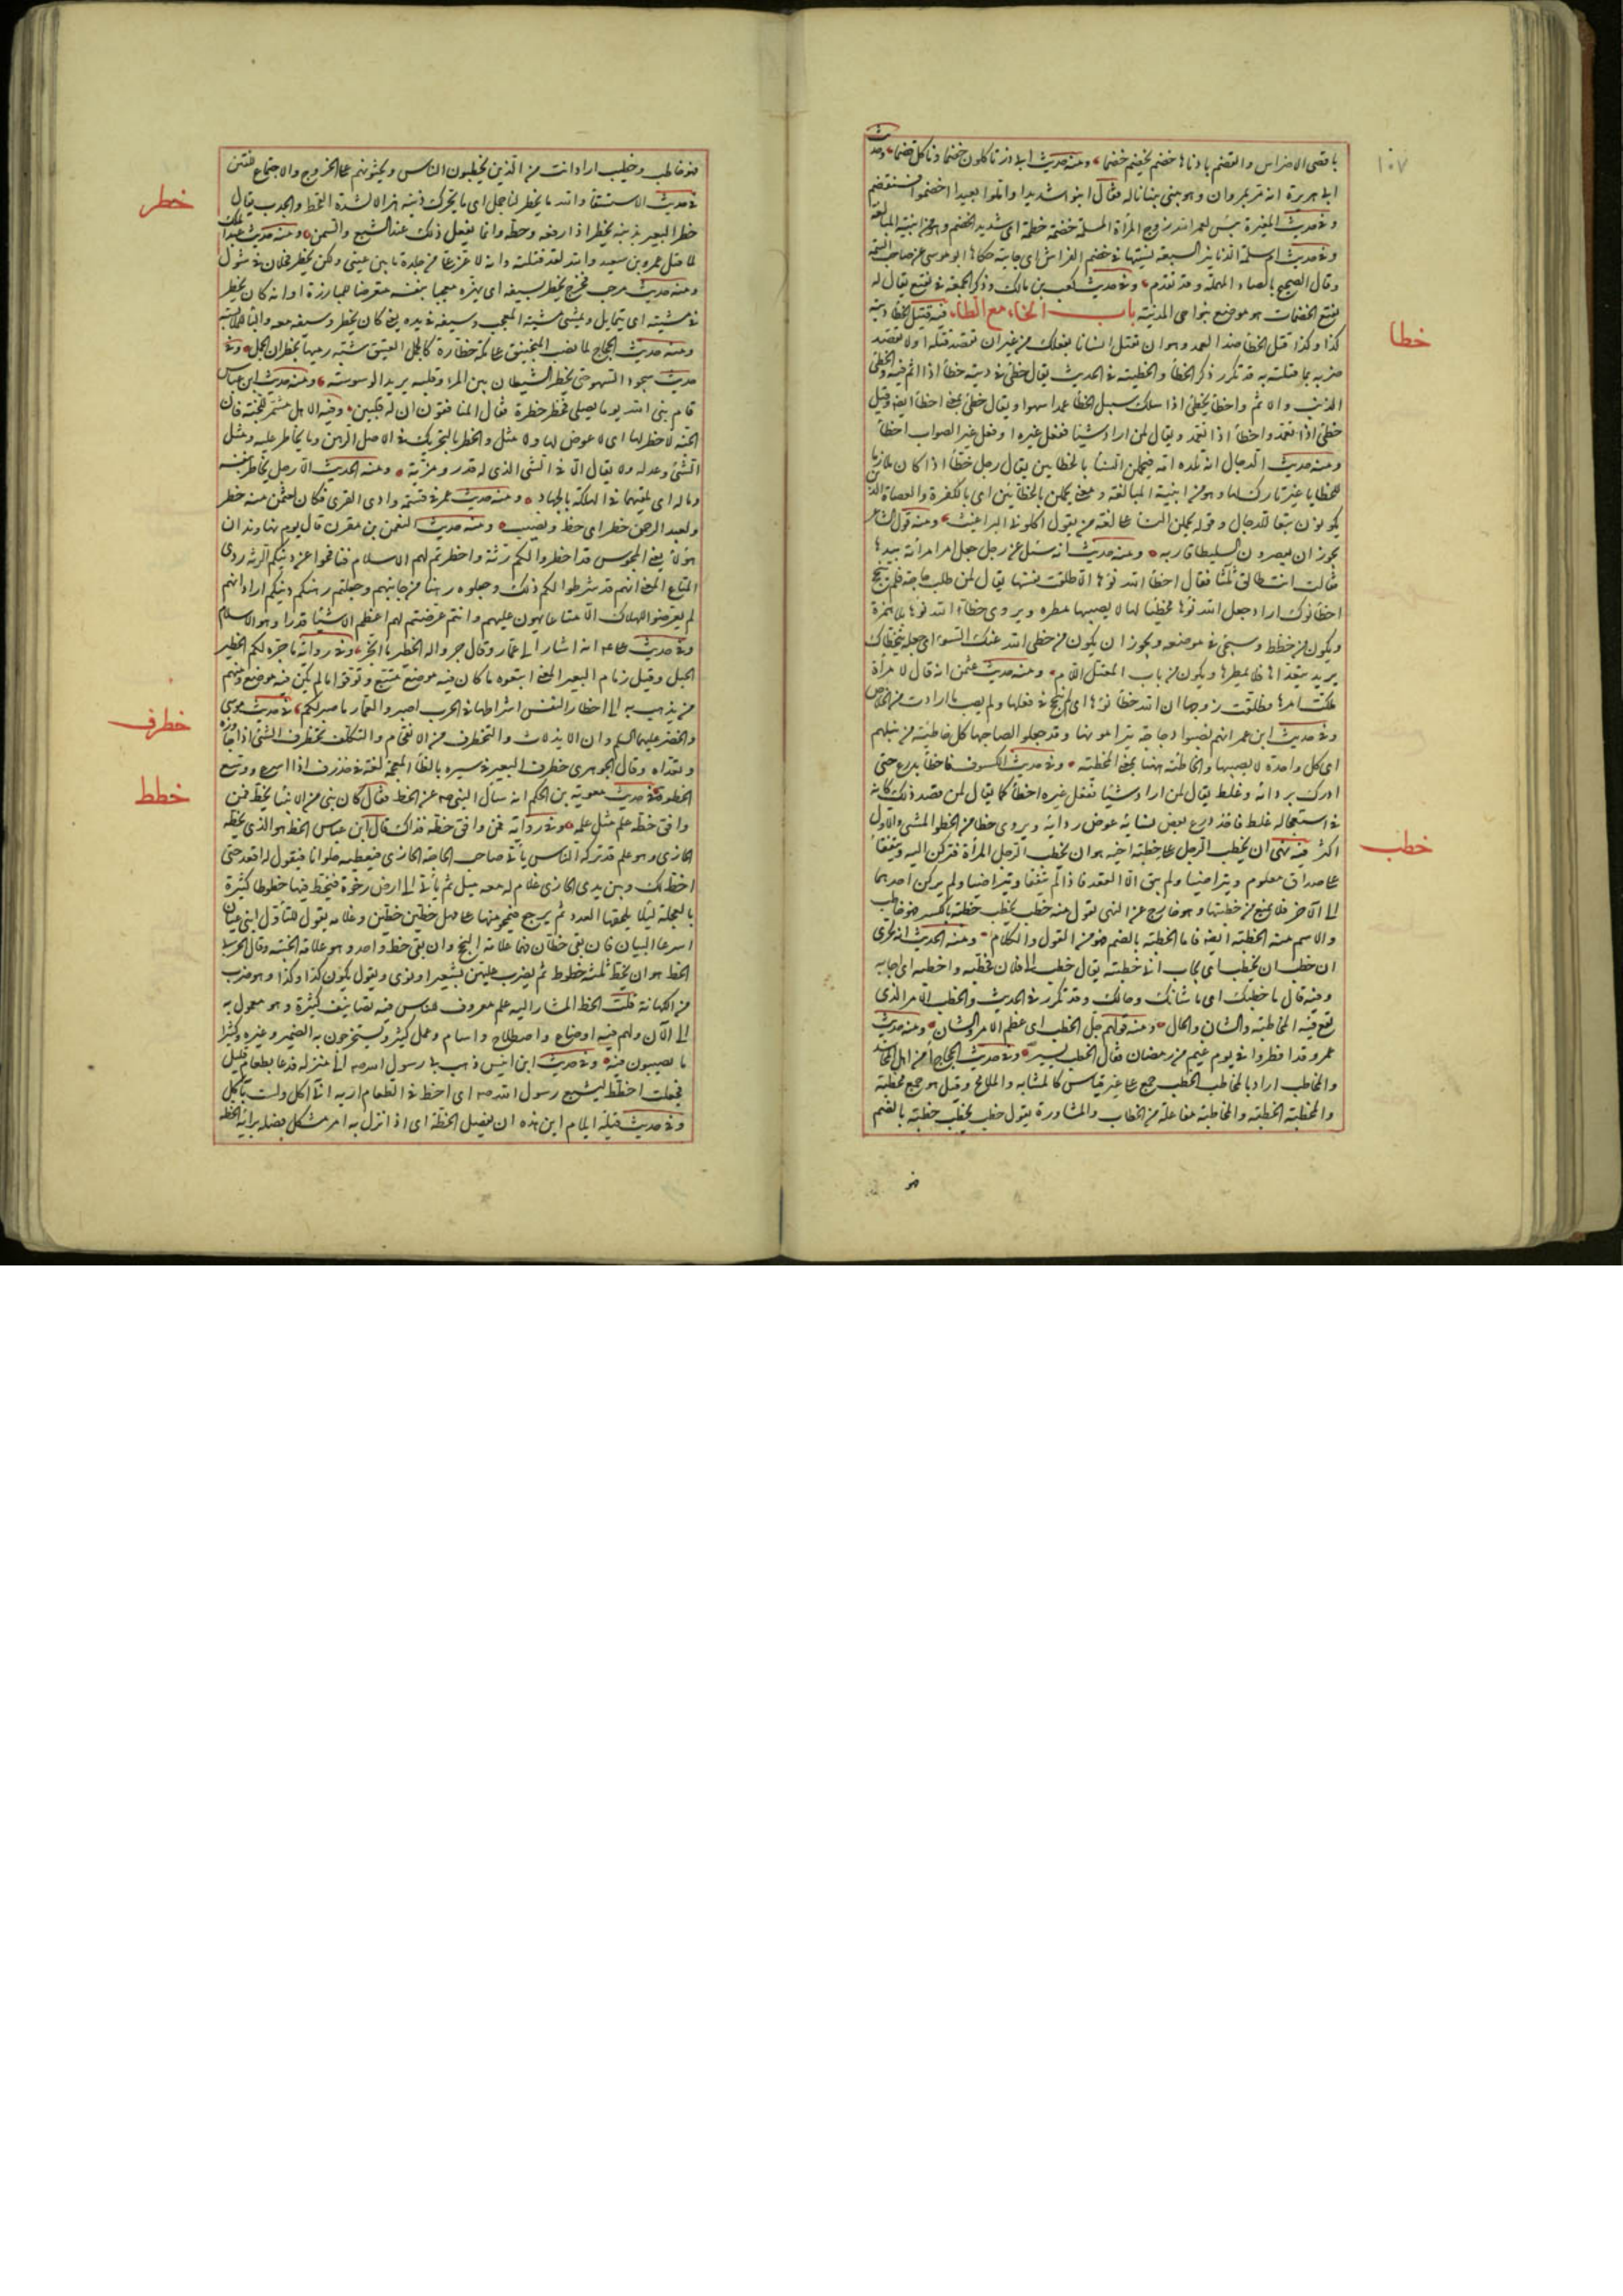 ١٠٧
باقصى الاضراس والقضم بادناها خضم يخضم خضما ومنه حديث ابى ذر تاكلون خضما وناكل قضما وحديث
ابى هريرة انه مر بمروان وهو يبنى بنيانا له فقال ابنوا شديدا واملوا بعيدا واخضموا فسنقضم
وفى حديث المغيرة بئس لعمر الله زوج المرأة المسلمة خضمة حطمة اى شديد الخضم وهو من ابنية المبالغة
وفى حديث ام سلمة الدنانير السبعة نسيتها فى خضم الفراش اى جانبه حكاها ابو موسى عن صاحب التتمة
وقال الصحيح بالصاد المهملة وقد تقدم وفى حديث كعب بن مالك وذكر الجمعة فى نقيع يقال له
نقيع الخضمات هو موضع بنواحى المدينة باب الخاء مع الطاء فيه قتيل الخطأ ديته
خطا
كذا وكذا قتل الخطأ ضد العمد وهو ان تقتل انسانا بفعلك من غير ان تقصد قتله او لا تقصد
ضربه بما قتلته به قد تكرر ذكر الخطأ والخطيئة فى الحديث يقال خطئ فى دينه خطأ اذا اثم فيه والخطئ
الذنب والاثم واخطأ يخطئ اذا سلك سبيل الخطأ عمدا وسهوا ويقال خطئ بمعنى اخطأ ايضا وقيل
خطئ اذا تعمد واخطأ اذا لم يتعمد ويقال لمن اراد شيئا ففعل غيره او فعل غير الصواب اخطأ
ومنه حديث الدجال انه تلده امه فيحملن النساء بالخطائين يقال رجل خطاء اذا كان ملازما
للخطايا غير تارك لها وهو من ابنية المبالغة ومعنى يحملن بالخطائين اى بالكفرة والعصاة الذين
يكونون تبعا للدجال وقوله يحملن النساء على لغة من يقول اكلونى البراغيث ومنه قول الشاعر
بحوران يعصرون السليط اقاربه ومنه حديث انه سئل عن رجل جعل امر امرأته بيدها
فقالت انت طالق ثلثا فقال خطأ الله نوءها الا طلقت نفسها يقال لمن طلب حاجة فلم ينجح
اخطأ نوءك اراد جعل الله نوءها مخطئا لها لا يصيبها مطره ويروى خطا الله نوءها بلا همزة
ويكون من خطط وسيجئ فى موضعه ويجوز ان يكون من خطى الله عنك السوء اى جعله يتخطاك
يريد يتعداها فلا يمطرها ويكون من باب المعتل اللام ومنه حديث عثمن انه قال لامرأة
ملكت امرها فطلقت زوجها ان الله خطأ نوءها اى لم تنجح فى فعلها ولم تصب ما ارادت من الخلاص
وفى حديث ابن عمر انهم نصبوا دجاجة يترامونها وقد جعلوا لصاحبها كل خاطئة من نبلهم
اى كل واحدة لا يصيبها والخاطئة ههنا بمعنى المخطئة وفى حديث الكسوف فاخطأ بدرع حتى
ادرك بردائه وغلط يقال لمن اراد شيئا ففعل غيره اخطأ كما يقال لمن قصد ذلك كانه
فى استعجاله غلط فاخذ درع بعض نسائه عوض ردائه ويروى خطا من الخطو المشى والاول
اكثر فيه نهى ان يخطب الرجل على خطبة اخيه هو ان يخطب الرجل المرأة فتركن اليه ويتفقا
خطب
على صداق معلوم ويتراضيا ولم يبق الا العقد فاذا لم يتفقا ويتراضيا ولم يركن احدهما
الى الآخر فلا يمنع من خطبتها وهو خارج عن النهى تقول منه خطب يخطب خطبة بالكسر فهو خاطب
والاسم منه الخطبة ايضا فاما الخطبة بالضم فهو من القول والكلام ومنه الحديث انه لحرى
ان خطب ان يخطب اى يجاب الى خطبته يقال خطب الى فلان فخطبه واخطبه اى اجابه
وفيه قال ما خطبك اى ما شأنك وحالك وقد تكرر فى الحديث والخطب الامر الذى
تقع فيه المخاطبة والشان والحال ومنه قولهم جل الخطب اى عظم الامر والشان ومنه حديث
عمر وقد افطروا فى يوم غيم من رمضان فقال الخطب يسير وفى حديث الحجاج أمن اهل المحاشد
والمخاطب اراد بالمخاطب الخطب جمع على غير قياس كالمشابه والملامح وقيل هو جمع مخطبة
والمخطبة الخطبة والمخاطبة مفاعلة من الخطاب والمشاورة يقول خطب يخطب خطبة بالضم
فهو
فهو خاطب وخطيب اراد انت من الذين يخطبون الناس ويحثونهم على الخروج والاجتماع للفتن
فى حديث الاستسقاء والله ما يخطر لنا جمل اى ما يحرك ذنبه هزالا لشدة القحط والجدب يقال
خطر
خطر البعير بذنبه يخطر اذا رفعه وحطه وانما يفعل ذلك عند الشبع والسمن ومنه حديث عبدالملك
لما قتل عمرو بن سعيد والله لقد قتلته وانه لاعز على من جلدة ما بين عينى ولكن لا يخطر فحلان فى شول
ومنه حديث مرحب فخرج يخطر بسيفه اى يهزه معجبا بنفسه متعرضا للمبارزة او انه كان يخطر
فى مشيته اى يتمايل ويمشى مشية المعجب وسيفه فى يده يعنى كان يخطر وسيفه معه والباء للملابسة
ومنه حديث الحجاج لما نصب المنجنيق على مكة خطارة كالجمل الفنيق شبه رميها بخطران الجمل وفى
حديث سجود السهو حتى يخطر الشيطان بين المرء وقلبه يريد الوسوسة ومنه حديث ابن عباس
قام نبى الله يوما يصلى فخطر خطرة فقال المنافقون ان له قلبين وفيه الا هل مشمر للجنة فان
الجنة لا خطر لها اى لا عوض لها ولا مثل والخطر بالتحريك فى الاصل الرهن وما يخاطر عليه ومثل
الشئ وعدله ولا يقال الا فى الشئ الذى له قدر ومزية ومنه الحديث الا رجل يخاطر بنفسه
وماله اى يلقيهما فى الهلكة بالجهاد ومنه حديث عمر فى قسمة وادى القرى فكان لعثمن منه خطر
ولعبد الرحمن خطر اى حظ ونصيب ومنه حديث النعمن بن مقرن قال يوم نهاوند ان
هؤلاء يعنى المجوس قد اخطروا لكم رثة واخطرتم لهم الاسلام فنافحوا عن دينكم الرثة ردى
المتاع المعنى انهم قد شرطوا لكم ذلك وجعلوه رهنا من جانبهم وجعلتم رهنكم دينكم اراد انهم
لم يعرضوا للهلاك الا متاعا يهون عليهم وانتم عرضتم لهم اعظم الاشياء قدرا وهو الاسلام
وفى حديث على انه اشار الى عمار وقال جروا له الخطير ما انجر وفى رواية ما جره لكم الخطير
الحبل وقيل زمام البعير المعنى اتبعوه ما كان فيه موضع متبع وتوقوا ما لم يكن فيه موضع ومنهم
من يذهب به الى اخطار النفس واشراطها فى الحرب اصبروا لعمار ما صبر لكم فى حديث موسى
خطرف
والخضر عليهما السلم وان الاندلاث والتخطرف من الانقحام والتكلف تخطرف الشئ اذا جاوزه
وتعداه وقال الجوهرى خطرف البعير فى سيره بالظاء المعجمة لغة فى خذرف اذا اسرع ووسع
الخطو فى حديث معوية بن الحكم انه سال النبى صلعم عن الخط فقال كان نبى من الانبياء يخط فمن
خطط
وافق خطه علم مثل علمه وفى رواية فمن وافق خطه فذاك قال ابن عباس الخط هو الذى يخطه
الحازى وهو علم قد تركه الناس يأتى صاحب الحاجة الحازى فيعطيه حلوانا فيقول له اقعد حتى
اخط لك وبين يدى الحازى غلام له معه ميل ثم يأتى الى ارض رخوة فيخط فيها خطوطا كثيرة
بالعجلة لئلا يلحقها العدد ثم يرجع فيمحو منها على مهل خطين خطين وغلامه يقول للتفاؤل ابنى عيان
اسرعا البيان فان بقى خطان فهما علامة النجح وان بقى خط واحد فهو علامة الخيبة وقال الحربى
الخط هو ان يخط ثلثة خطوط ثم يضرب عليهن بشعير او نوى ويقول يكون كذا وكذا وهو ضرب
من الكهانة قلت الخط المشار اليه علم معروف للناس فيه تصانيف كثيرة وهو معمول به
الى الآن ولهم فيه اوضاع واصطلاح واسام وعمل كثير ويستخرجون به الضمير وغيره وكثيرا
ما يصيبون فيه وفى حديث ابن انيس ذهب بى رسول الله صلعم الى منزله فدعا بطعام قليل
فجعلت اخطط ليشبع رسول الله صلعم اى اخط فى الطعام اريه انى آكل ولست بآكل
وفى حديث قيلة ايلام ابن هذه ان يفصل الخطة اى اذا نزل به امر مشكل فصله برأيه الخطة